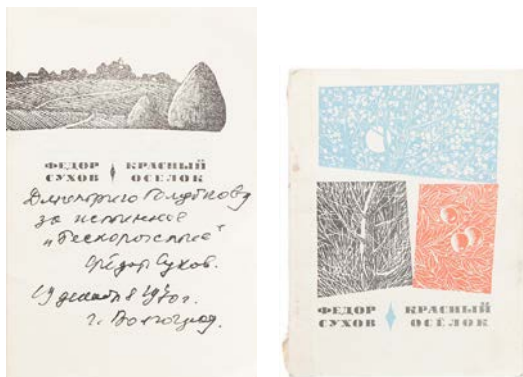 ФЕДОР КРАСНЫЙ
СУХОВ ОСЕЛОК
Дмитрию Голубкову
за истинное
„бескорыстие“
Фёдор Сухов.
19 декабря 1970г.
г. Волгоград.
ФЕДОР КРАСНЫЙ
СУХОВ ОСЁЛОК